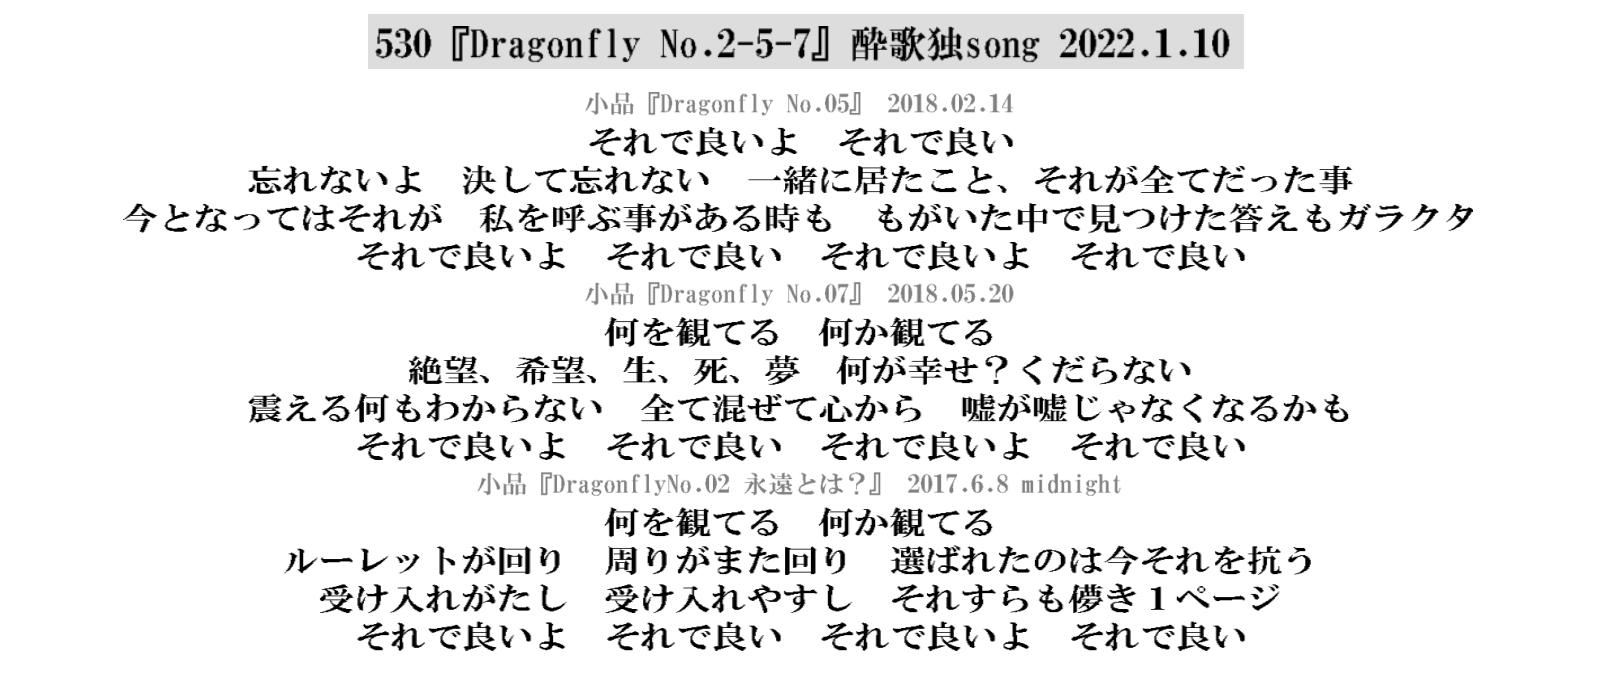 530『Dragonfly No.2-5-7』酔歌独song 2022.1.10
小品『Dragonfly No.05』 2018.02.14
それで良いよ　それで良い
忘れないよ　決して忘れない　一緒に居たこと、それが全てだった事
今となってはそれが　私を呼ぶ事がある時も　もがいた中で見つけた答えもガラクタ
それで良いよ　それで良い　それで良いよ　それで良い
小品『Dragonfly No.07』 2018.05.20
何を観てる　何か観てる
絶望、希望、生、死、夢　何が幸せ？くだらない
震える何もわからない　全て混ぜて心から　嘘が嘘じゃなくなるかも
それで良いよ　それで良い　それで良いよ　それで良い
小品『DragonflyNo.02 永遠とは？』 2017.6.8 midnight
何を観てる　何か観てる
ルーレットが回り　周りがまた回り　選ばれたのは今それを抗う
受け入れがたし　受け入れやすし　それすらも儚き１ページ
それで良いよ　それで良い　それで良いよ　それで良い